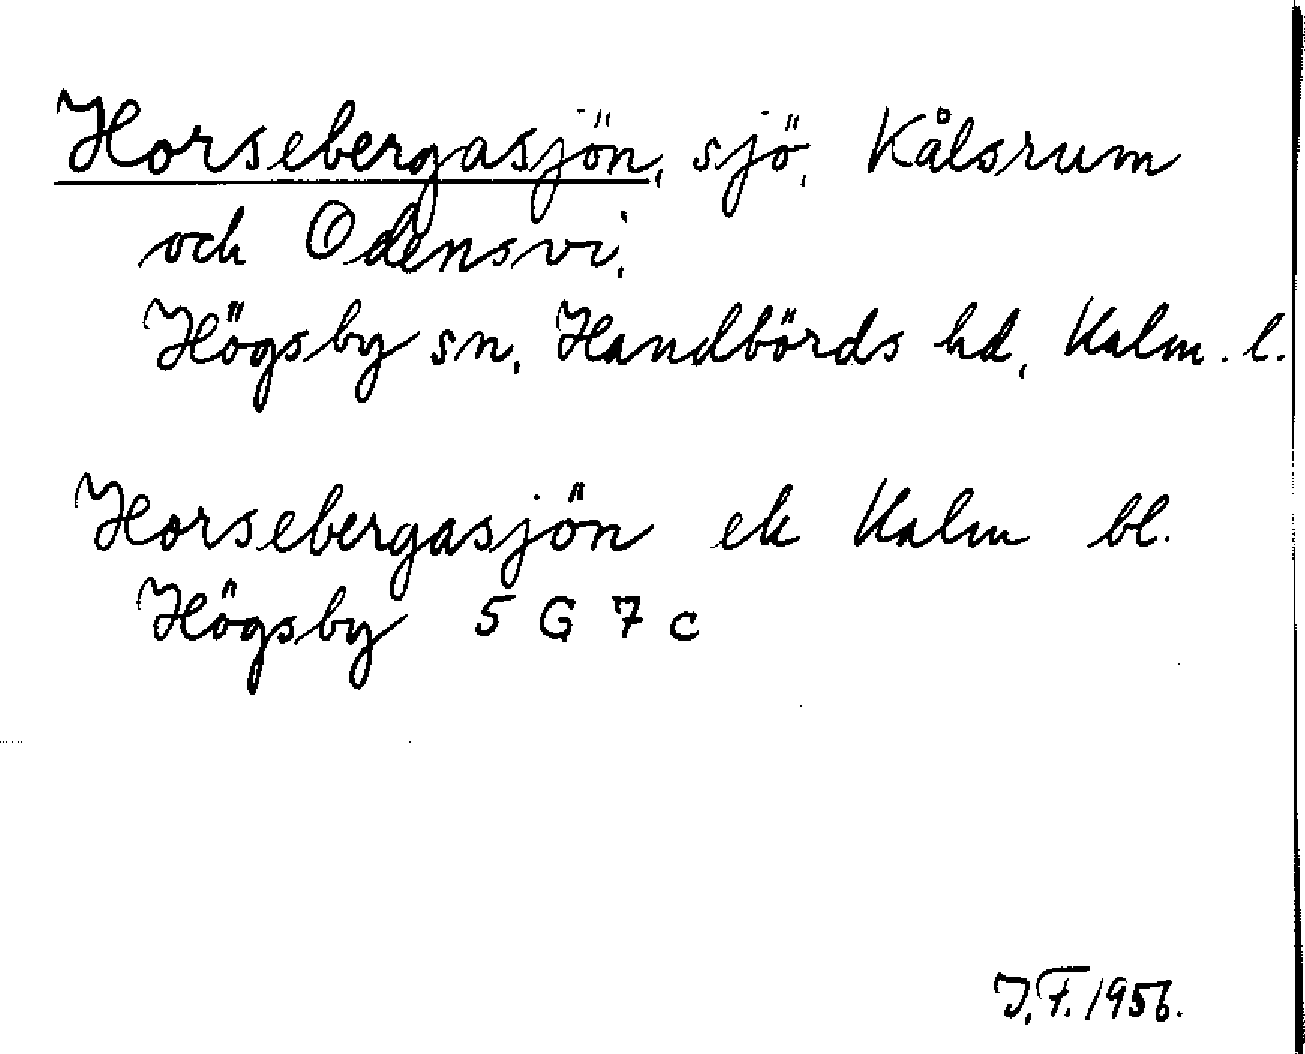 Horsebergasjön, sjö, Kålsrum
och Odensvi,
Högsby sn, Handbörds hd, Kalm. l.
Horsebergasjön ek Kalm bl.
Högsby 5 G 7 c
J.F. 1956.